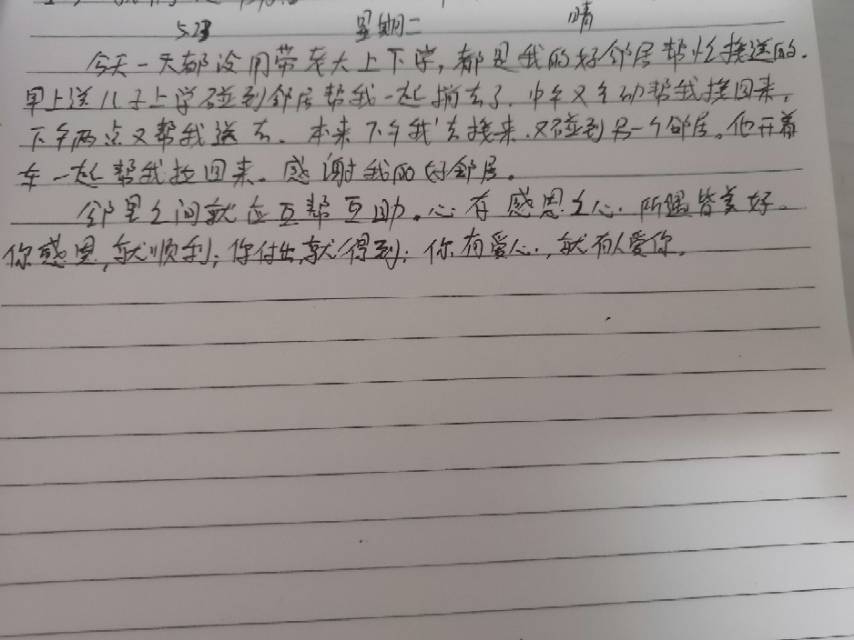 5.23 星期二 晴
今天一天都没用带老大上下学，都是我的好邻居帮忙接送的．
早上送儿子上学碰到邻居帮我一起捎去了．中午又主动帮我接回来，
下午两点又帮我送去．本来下午我去接来．又碰到另一个邻居。他开着
车一起帮我拉回来．感谢我的好邻居。
邻里之间就应互帮互助．心存感恩之心．所遇皆美好。
你感恩，就顺利；你付出，就得到；你有爱心，就有人爱你。